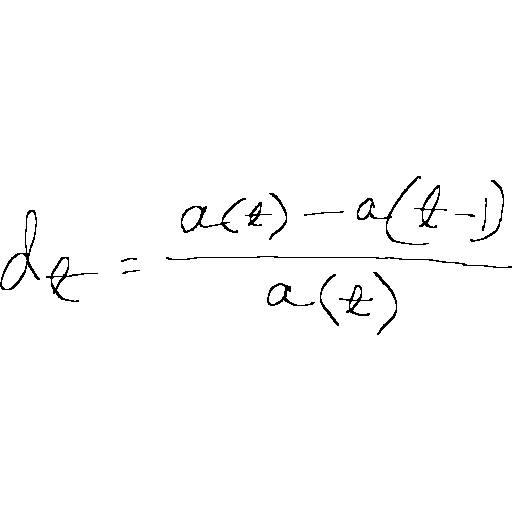 d_t = \frac{a(t) - a(t-1)}{a(t)}